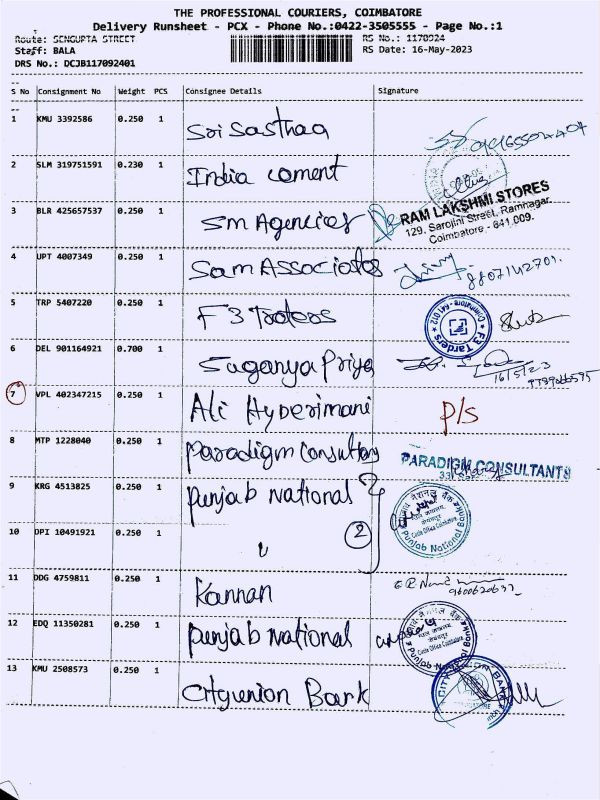 THE PROFESSIONAL COURIERS, COIMBATORE
Delivery Runsheet - PCX - Phone No.:0422-3505555 - Page No.:1
Route: SENGUPTA STREET RS No.: 1170924
Staff: BALA RS Date: 16-May-2023
DRS No.: DCJB117092401
S No Consignment No Weight PCS Consignee Details Signature
1 KMU 3392586 0.250 1 Sri Sasthaa
2 SLM 319751591 0.230 1 India cement
3 BLR 425657537 0.250 1 SM Agencies
RAM LAKSHMI STORES
129, Sarojini Street, Ramnagar,
Coimbatore - 641 009.
4 UPT 4007349 0.250 1 Sam Associates 8807142701.
5 TRP 5407220 0.250 1 F3 Traders
F3 Tarders
Coimbatore - 641 012
6 DEL 901164921 0.700 1 Suganya Priya
16/5/23
7 VPL 402347215 0.250 1 Ali Hyperimani P/S
8 MTP 1228040 0.250 1 Paradigm Consultancy PARADIGM CONSULTANTS
9 KRG 4513825 0.250 1 Punjab national
Punjab National Bank
10 DPI 10491921 0.250 1 " 2
11 DDG 4759811 0.250 1 Kannan
9600620637
12 EDQ 11350281 0.250 1 Punjab national
Punjab National Bank
13 KMU 2508573 0.250 1 Cityunion Bank